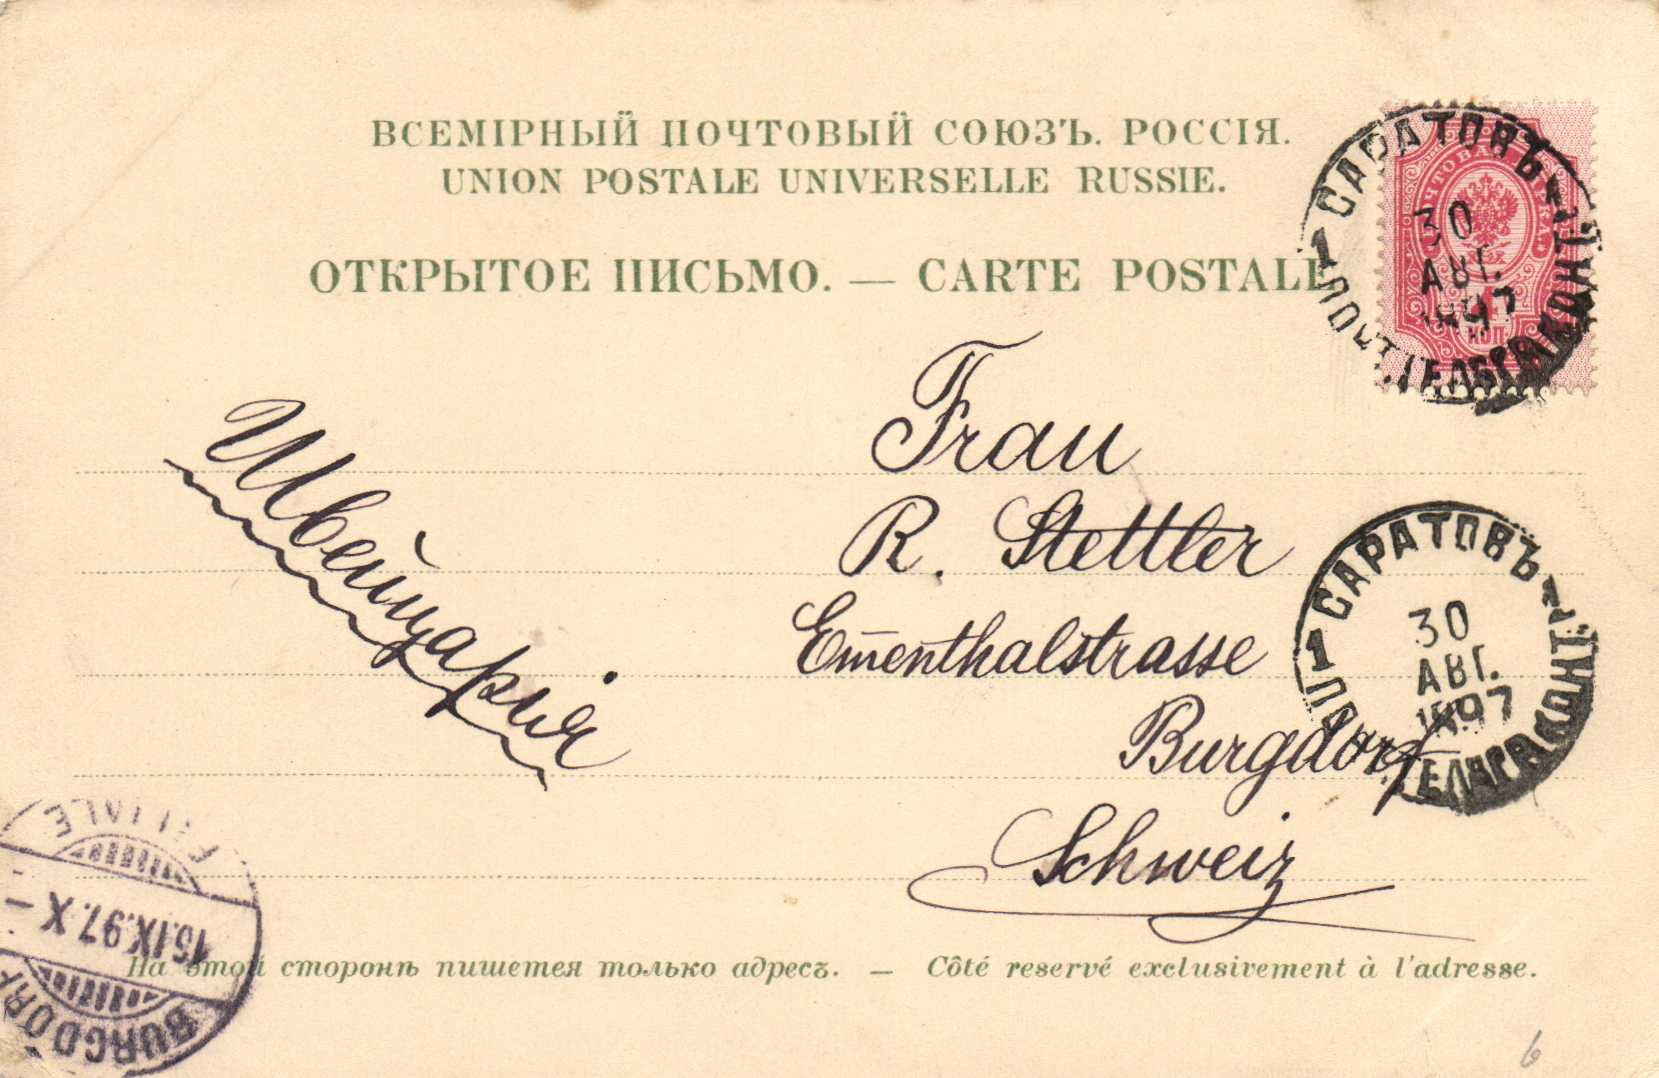 ВСЕМІРНЫЙ ПОЧТОВЫЙ СОЮЗЪ. РОССІЯ.
UNION POSTALE UNIVERSELLE RUSSIE.
ОТКРЫТОЕ ПИСЬМО. — CARTE POSTALE
САРАТОВЪ
30
АВГ.
1897
1
КОП.
Швейцарія
Frau
R. Stettler
Em̅enthalstrasse
Burgdorf
Schweiz
1 САРАТОВЪ
30
АВГ.
1897
FILIALE
15.IX.97.X –
BURGDORF
На этой сторонѣ пишется только адресъ. — Côté reservé exclusivement à l'adresse.
6